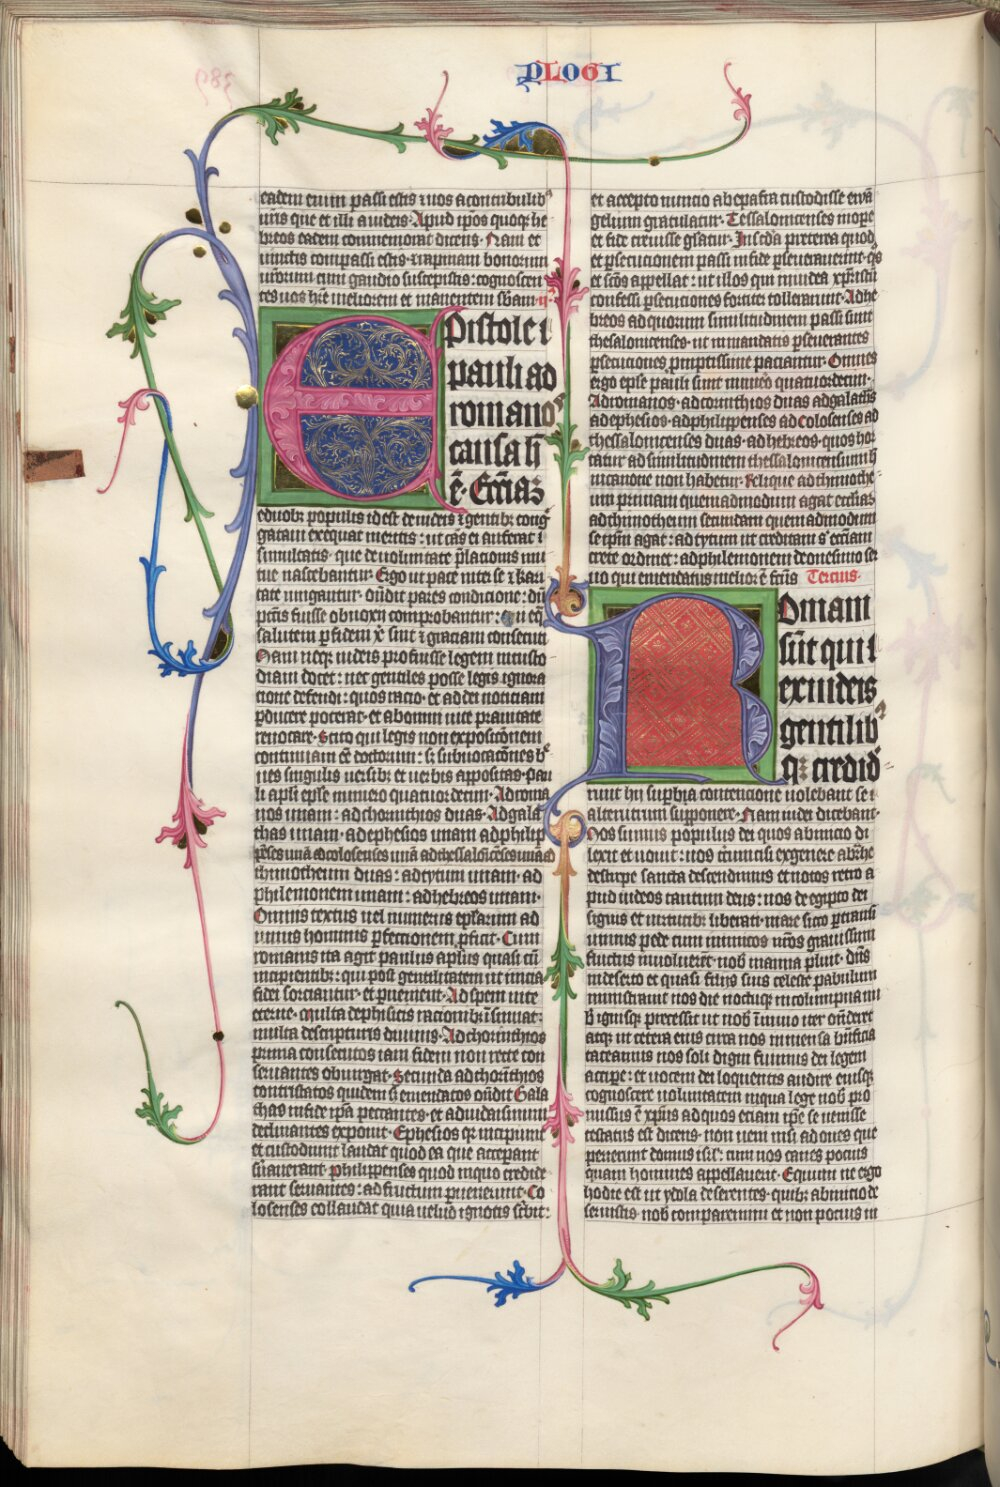 PLOGI
eadem enim passi estis et vos a contribulib'
v̄ris que et illi a iudeis. Apud ip̄os quoq; he
breos eadem commemorat dicens. Nam et
vinctis compassi estis. et rapinam bonorum
v̄rorum cum gaudio suscepistis: cognoscen
tes vos h̄re meliorem et manentem s̄bam.
Epistole
pauli ad
romanos
causa h̄
ē. Eccl̄ias
e duob; populis id est de iudeis et gentib; cong
gatam exequat meritis: ut cās ei auferat
simultatis. que de voluntate p̄lacionis mu
tue nascebantur. Ergo ut pace inter se et kari
tate iungantur. ostendit pares condicione: dū
pctis fuisse obnoxii comprobantur:
salutem p fidem xp̄i sint et graciam consecuti
Nam neq; iudeis profuisse legem
diam docet: nec gentiles posse legis ignora
tione defendi: quos racio. et ad dei noticiam
pducere poterat. et ab omni vite prauitate
reuocare. Scito qui legis non expositionem
continuam eē
ues singulis versib; et verbis appositas. Pau
li apl̄i ep̄le numero quatuordecim. Ad roma
nos unam: ad chorinthios duas. Ad gala
thas unam. ad ephesios unam ad philip
peses unā ad colosenses unā ad thessalonicēses unā ad
thimotheum duas: ad tytum unam. ad
philemonem unam: ad hebreos unam.
Omnis textus vel numerus ep̄larum ad
unius hominis pfectionem pficit. Cum
romanis ita agit paulus ap̄lus quasi cū
incipientib;: qui post gentilitatem ut inicia
fidei sorciantur. et pueniant. Ad spem vite
eterne. multa de phisicis racionib; insinuat:
multa de scripturis diuinis. Ad chorinthios
prima consecutos iam fidem non recte con
seruantes obiurgat. Secunda ad thorīthios
contristatos quidem s; emendatos ostēdit Gala
thas in fide ip̄a peccantes. et ad iudaismum
declinantes exponit. Ephesios q; incipiunt
et custodiunt laudat quod ea que acceperant
suauerant. philippenses quod in quo credide
rant seruantes: ad fructum puenerunt. Co
losenses collaudat quia velud ignotis scribit:
et accepto nuncio ab epafra custodisse euā
gelium gratulatur. Tessalonicenses in ope
et fide creuisse gl̄atur. In scd̄a preterea quod
et psecutionem passi in fide pseuerauerint. q̄s
et scōs appellat: ut illos qui in iudea xp̄m
confessi psecutiones fortiter tollerarunt. Ad he
breos ad quorum similitudinem passi sunt
thesalonicenses. ut in mandatis pseuerantes
psecutiones promptissime paciantur. Omnes
ergo ep̄le pauli sunt numero quatuordecim.
Ad romanos. ad corinthios duas ad galathas
ad ephesios. ad philippenses ad colosenses ad
thessalonicenses duas. ad hebreos. quos hor
tatur ad similitudinem thessalonicensium h
in canone non habetur. Relique ad thimothe
um primam quemadmodum agat eccl̄ias
ad thimotheum secundam quemadmodum
se ip̄m agat: ad tytum ut creditam s; eccl̄iam
recte ordinet: ad philemonem de onesimo ser
uo qui emendatus melior ē factus Tercius.
Romani
sūt qui
ex iudeis
gentilib'
q; credid
runt hii supbia contencione volebant se
alterutrum supponere. Nam iudei dicebant.
Nos sumus populus dei quos ab inicio di
lexit et nouit: nos circumcisi ex genere abrahe
de stirpe sancta descendimus et notus retro a
pud iudeos tantum deus: nos de egipto dei
signis et virtutib; liberati. mare sicco ptransi
uimus pede cum inimicos nr̄os grauissimi
fluctus inuoluerent. nob' manna pluit. dn̄s
in deserto et quasi filiis suis celeste pabulum
ministrauit nos die noctuq; in columpna nu
b' ignisq; precessit ut nob' in inuio iter ostēderet
atq; ut cetera eius circa nos immensa bn̄ficia
taceamus nos soli digni fuimus dei legem
accipe: et vocem dei loquentis audire eiusq;
cognoscere voluntatem in qua lege nob' pro
missus ē xp̄us ad quos etiam ip̄e se venisse
testatus est dicens. non veni nisi ad oues que
perierunt domus isrl': cum vos canes pocius
quam homines appellauerit. Equum ne ergo
hodie est ut ydola deserentes. quib; ab inicio de
seruistis. nob' comparemini et non pocius in